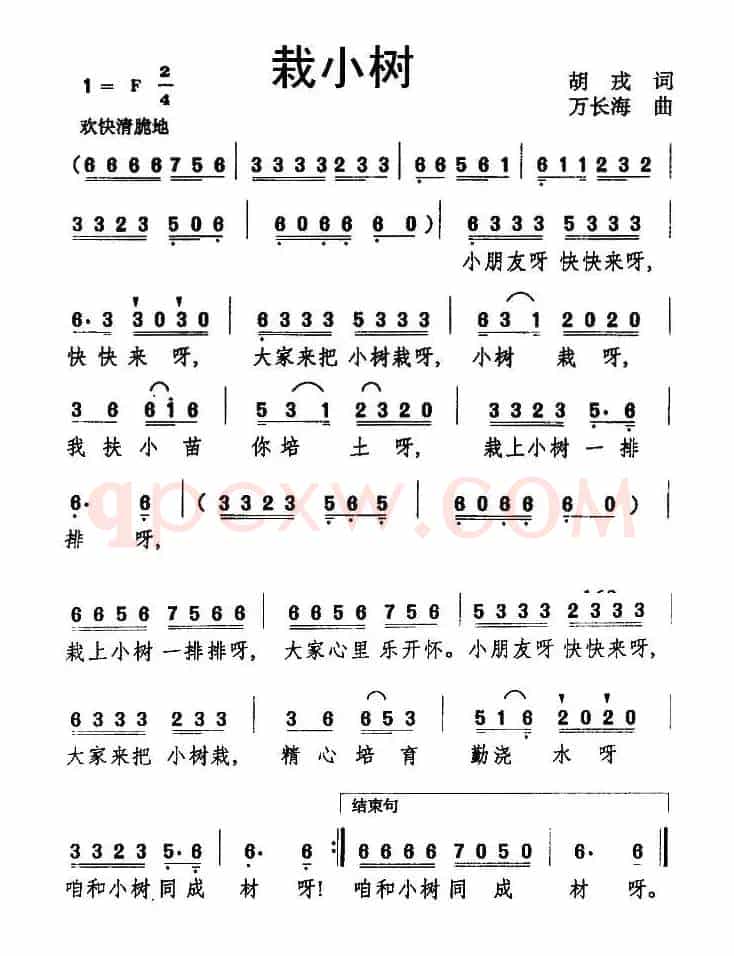 栽小树
1 = F 2/4
胡戎 词
万长海 曲
欢快清脆地
(6 6 6 6 7 5 6 | 3 3 3 3 2 3 3 | 6 6 5 6 1 | 6 1 1 2 3 3 |
3 3 2 3 5 0 6 | 6 0 6 6 6 0) | 6 3 3 3 5 3 3 3 |
小朋友呀 快快来呀,
6· 3 3 0 3 0 | 6 3 3 3 5 3 3 3 | 6 3 1 2 0 2 0 |
快快来呀, 大家来把 小树栽呀, 小树 栽 呀,
3 6 6 1 6 | 5 3 1 2 3 2 0 | 3 3 2 3 5· 6 |
我扶小苗 你培 土呀, 栽上小树一排
6· 6 | (3 3 2 3 5 6 5 | 6 0 6 6 6 0) |
排 呀,
qpcxw.COM
6 6 5 6 7 5 6 6 | 6 6 5 6 7 5 6 | 5 3 3 3 2 3 3 3 |
栽上小树 一排排呀, 大家心里 乐开怀。 小朋友呀 快快来呀,
6 3 3 3 2 3 3 | 3 6 6 5 3 | 5 1 6 2 0 2 0 |
大家来把 小树栽, 精心培育 勤浇 水呀
结束句
3 3 2 3 5· 6 | 6· 6 :| 6 6 6 6 7 0 5 0 | 6· 6 ‖
咱和小树同成 材 呀! 咱和小树同 成 材 呀。